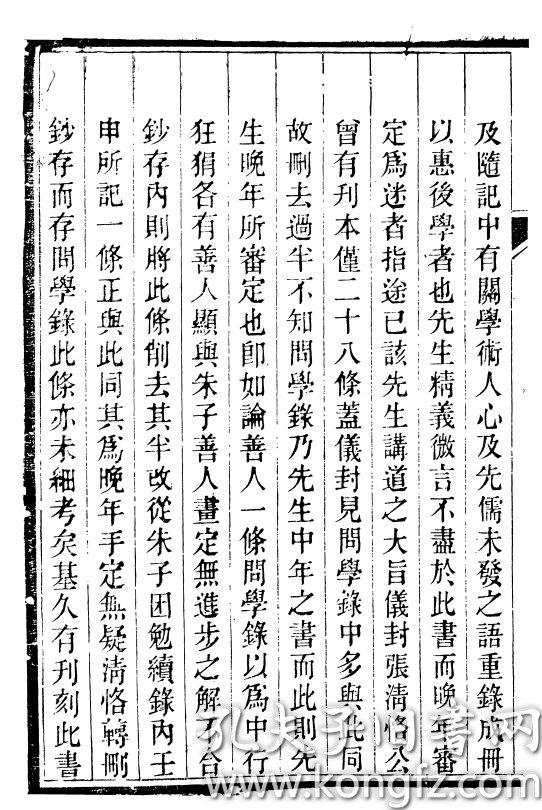 及隨記中有關學術人心及先儒未發之語重錄成冊
以惠後學者也先生精義微言不盡於此書而晚年審
定爲迷者指途已該先生講道之大旨儀封張清恪公
曾有刊本僅二十八條蓋儀封見問學錄中多與此同
故刪去過半不知問學錄乃先生中年之書而此則先
生晚年所審定也卽如論善人一條問學錄以爲中行
狂狷各有善人顯與朱子善人畫定無進步之解不合
鈔存內則將此條削去其半改從朱子困勉續錄內壬
申所記一條正與此同其爲晚年手定無疑淸恪轉刪
鈔存而存問學錄此條亦未細考矣基久有刊刻此書
孔夫子旧書网
www.kongfz.com